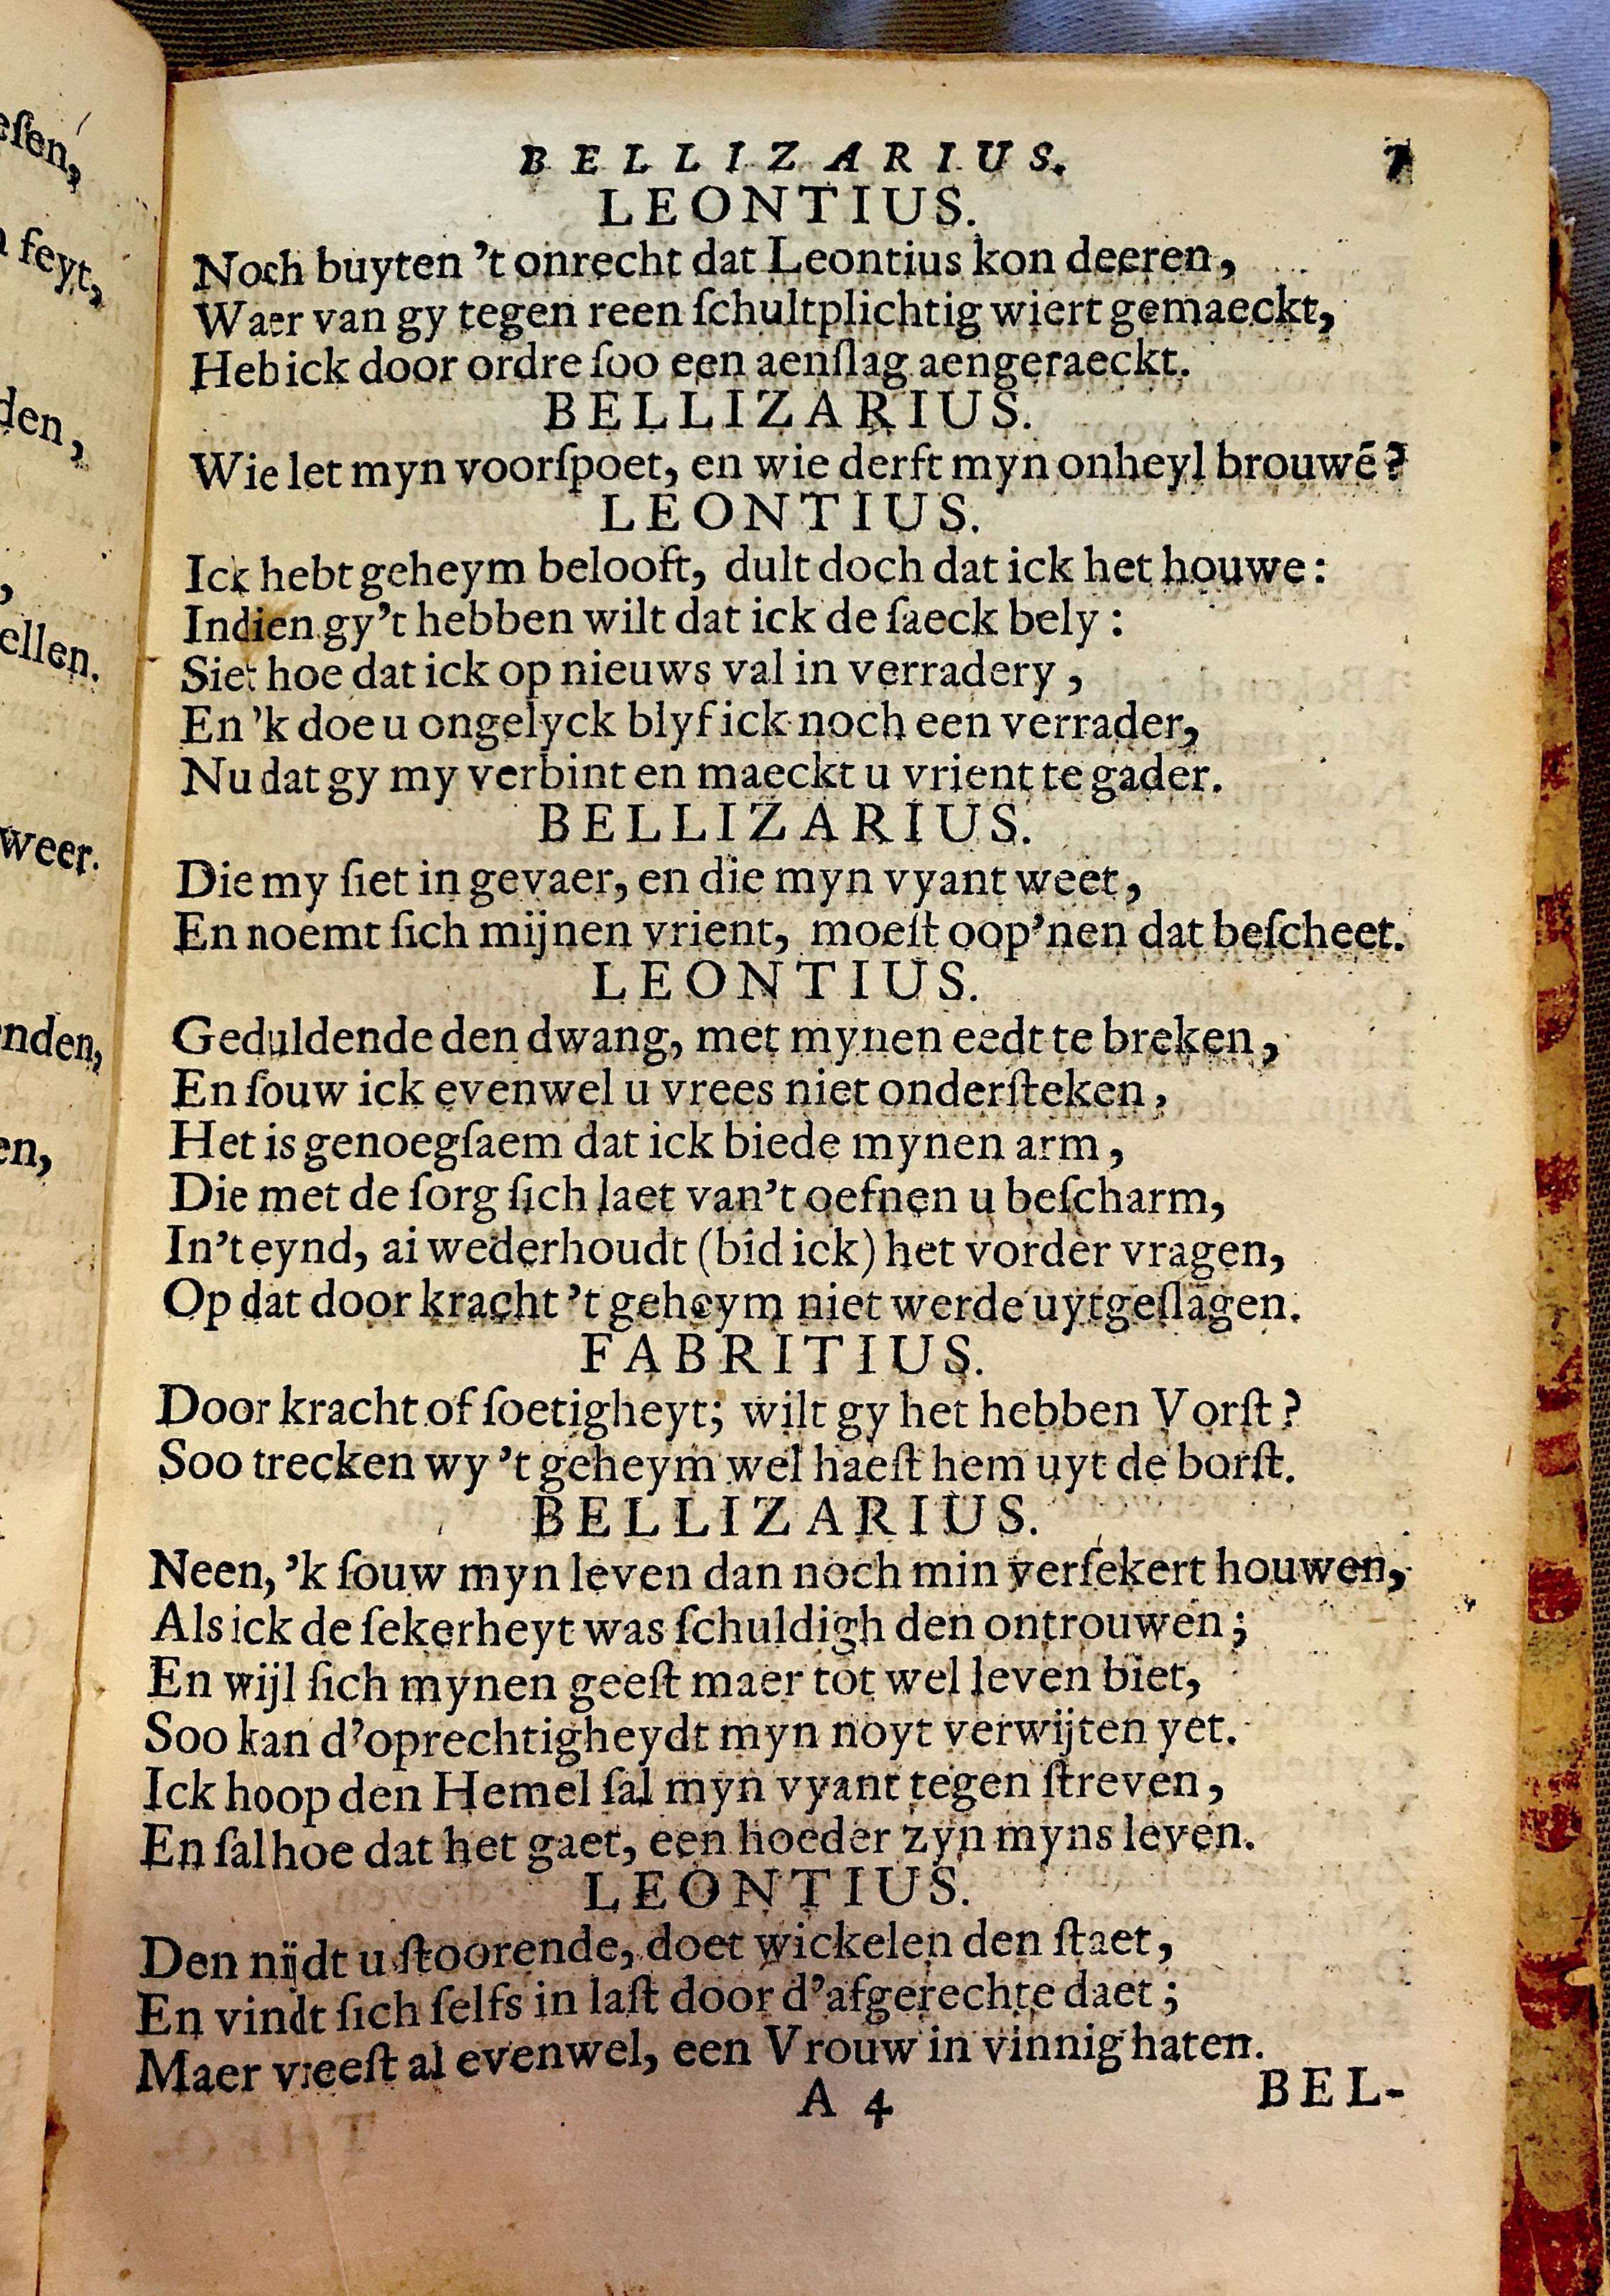 eſen,
feyt,
den,
,
ellen.
weer.
nden,
en,
BELLIZARIUS. 7
LEONTIUS.
Noch buyten 't onrecht dat Leontius kon deeren,
Waer van gy tegen reen ſchultplichtig wiert gemaeckt,
Heb ick door ordre ſoo een aenſlag aengeraeckt.
BELLIZARIUS.
Wie let myn voorſpoet, en wie derft myn onheyl brouwē?
LEONTIUS.
Ick hebt geheym belooft, dult doch dat ick het houwe:
Indien gy't hebben wilt dat ick de ſaeck bely:
Siet hoe dat ick op nieuws val in verradery,
En 'k doe u ongelyck blyf ick noch een verrader,
Nu dat gy my verbint en maeckt u vrient te gader.
BELLIZARIUS.
Die my ſiet in gevaer, en die myn vyant weet,
En noemt ſich mijnen vrient, moeſt oop'nen dat beſcheet.
LEONTIUS.
Geduldende den dwang, met mynen eedt te breken,
En ſouw ick evenwel u vrees niet onderſteken,
Het is genoegſaem dat ick biede mynen arm,
Die met de ſorg ſich laet van't oefnen u beſcharm,
In't eynd, ai wederhoudt (bid ick) het vorder vragen,
Op dat door kracht 't geheym niet werde uytgeſlagen.
FABRITIUS.
Door kracht of ſoetigheyt; wilt gy het hebben Vorſt?
Soo trecken wy 't geheym wel haeſt hem uyt de borſt.
BELLIZARIUS.
Neen, 'k ſouw myn leven dan noch min verſekert houwen,
Als ick de ſekerheyt was ſchuldigh den ontrouwen;
En wijl ſich mynen geeſt maer tot wel leven biet,
Soo kan d'oprechtigheydt myn noyt verwijten yet.
Ick hoop den Hemel ſal myn vyant tegen ſtreven,
En ſal hoe dat het gaet, een hoeder zyn myns leven.
LEONTIUS.
Den nijdt u ſtoorende, doet wickelen den ſtaet,
En vindt ſich ſelfs in laſt door d'afgerechte daet;
Maer vreeſt al evenwel, een Vrouw in vinnig haten.
A 4 BEL-